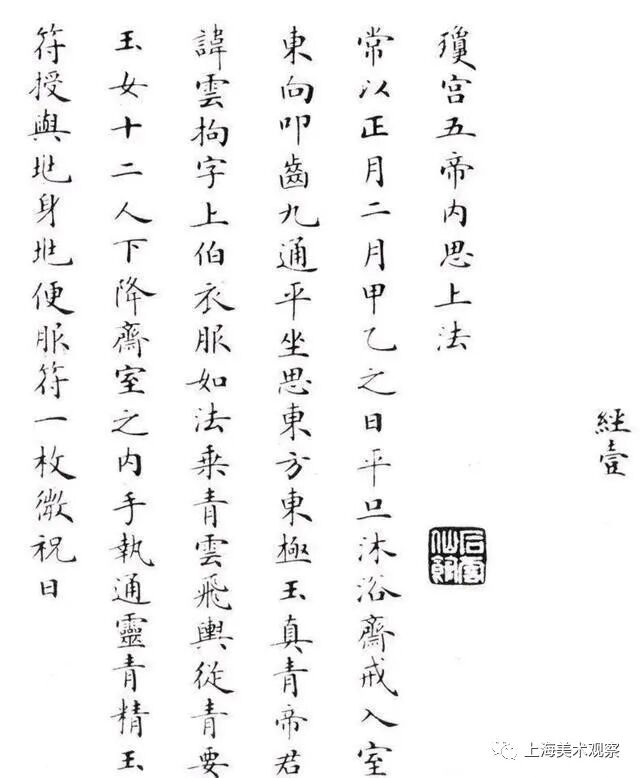 經壹
瓊宫五帝内思上法
常以正月二月甲乙之日平旦沐浴齋戒入室
東向叩齒九通平坐思東方東極玉真青帝君
諱雲拘字上伯衣服如法乗青雲飛輿從青要
玉女十二人下降齋室之内手執通靈青精玉
符授與兆身兆便服符一枚微祝曰
上海美术观察